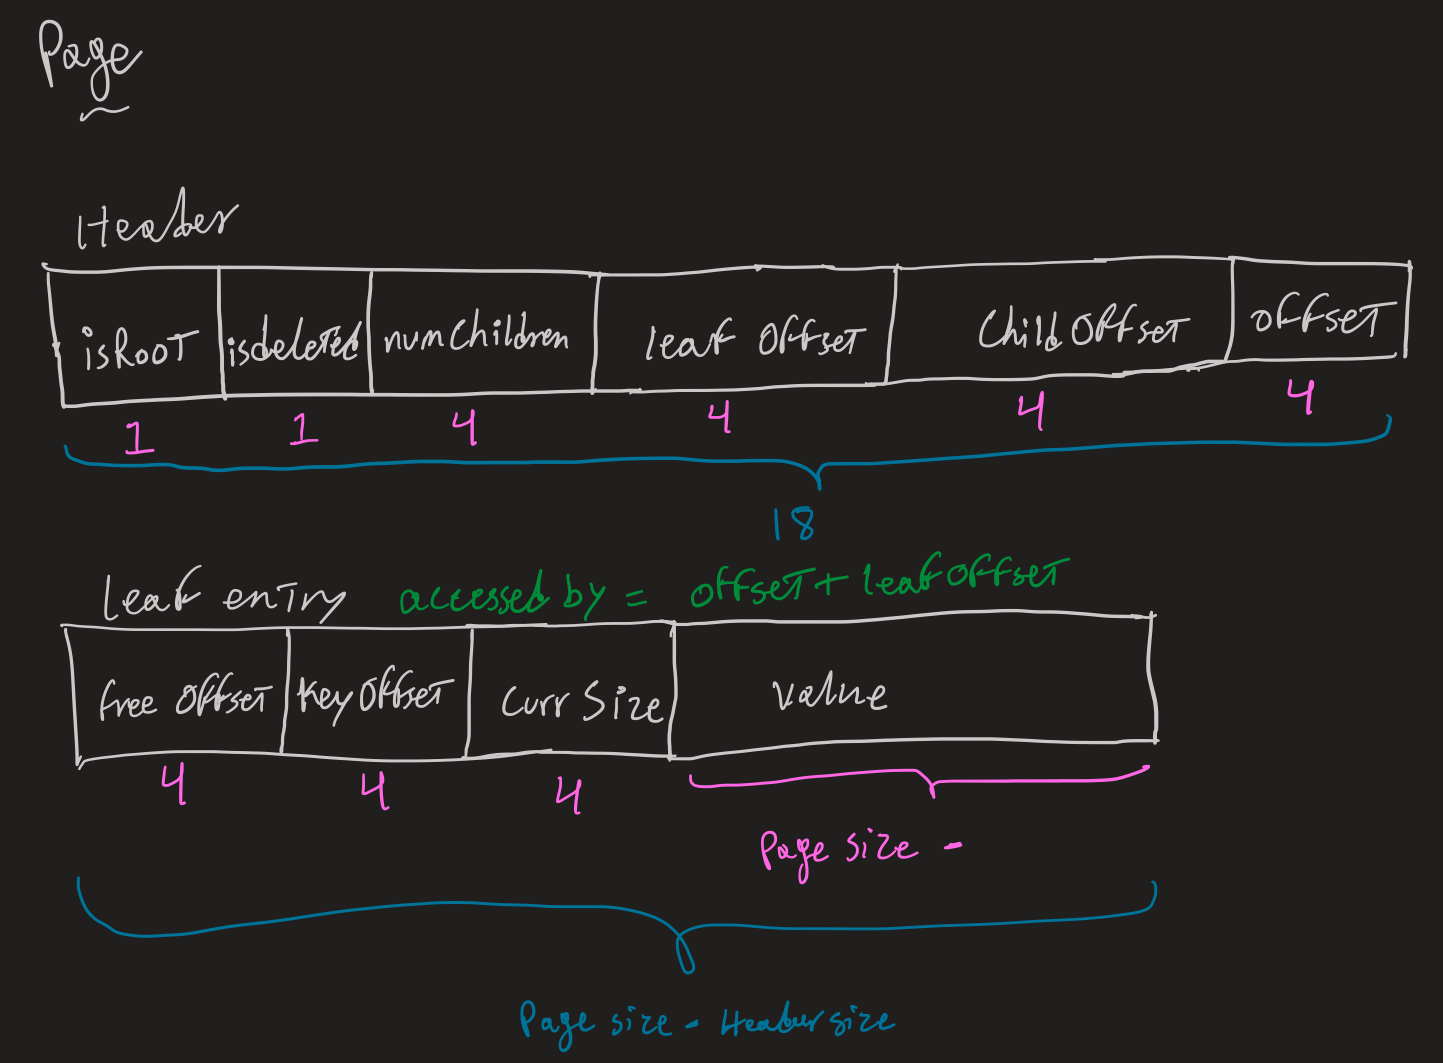 Page
Header
isRoot isdeleted numChildren leaf Offset Child Offset offset
1 1 4 4 4 4
18
Leaf entry accessed by = offset + leaf offset
free offset key Offset Curr Size value
4 4 4
Page size -
Page size - Header size